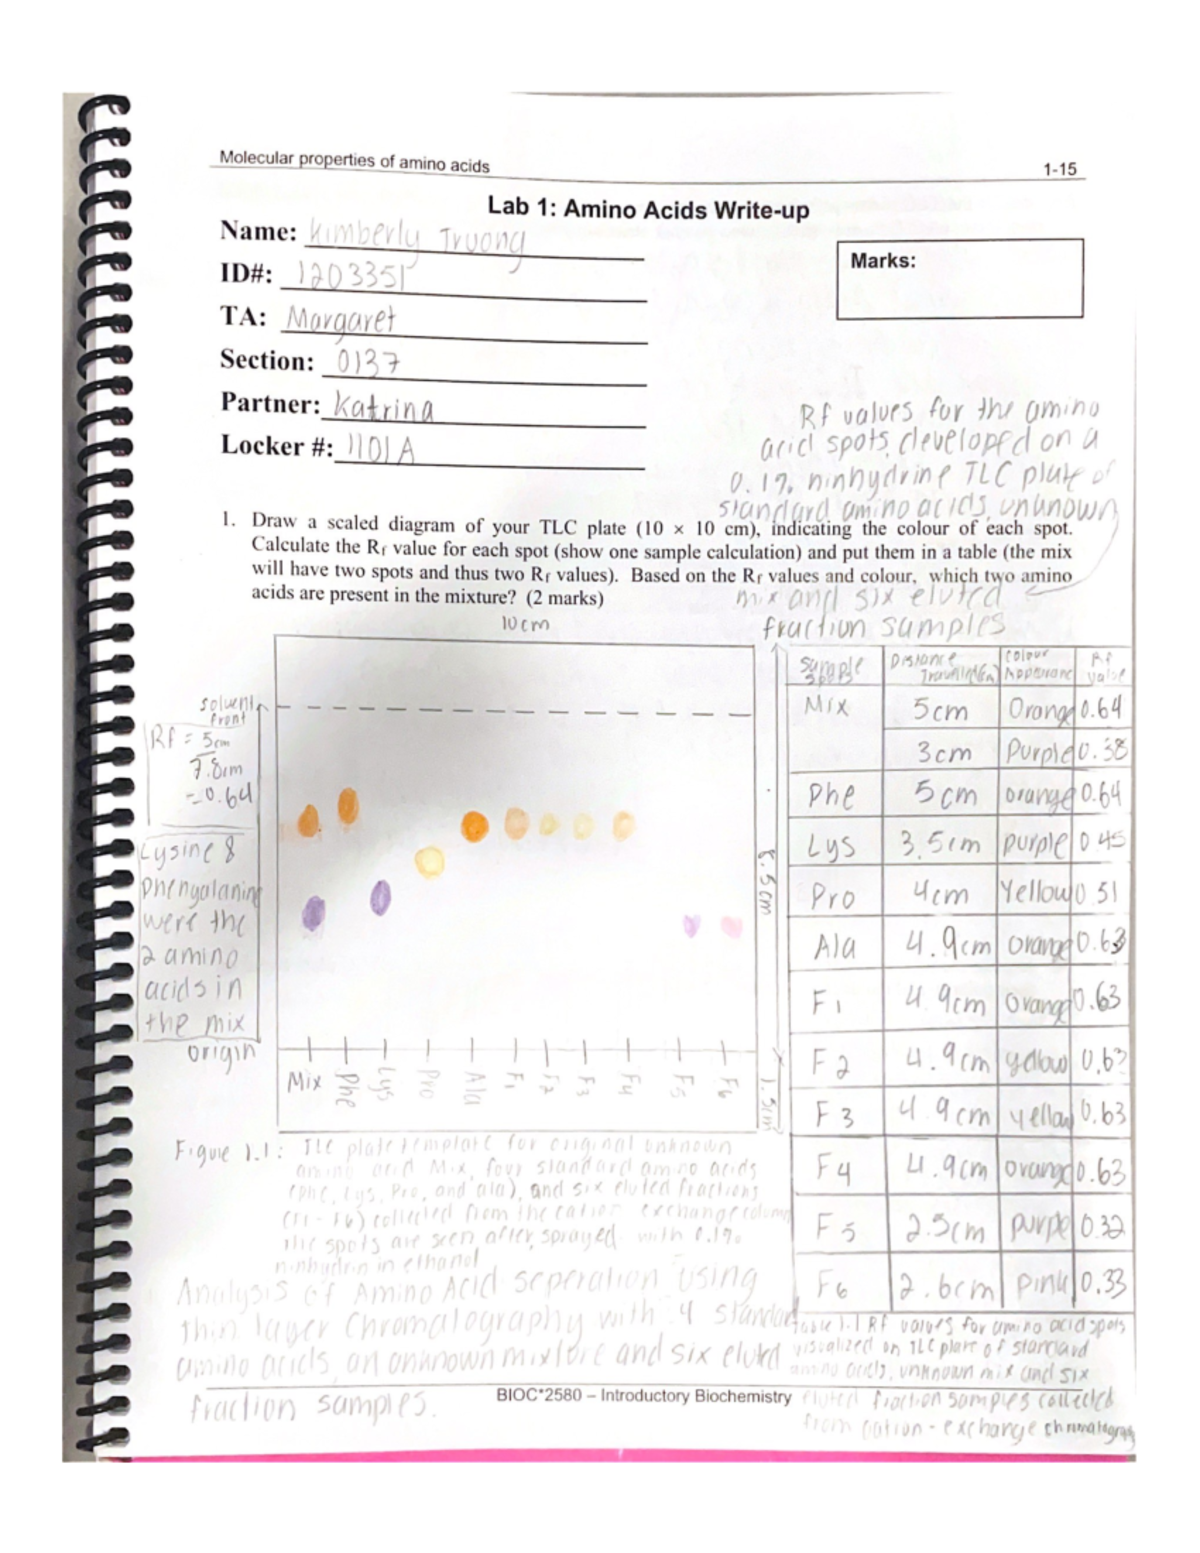 Molecular properties of amino acids
1-15
Lab 1: Amino Acids Write-up
Name: Kimberly Truong
Marks:
ID#: 1203351
TA: Margaret
Section: 0137
Partner: Katrina
Locker #: 1101A
Rf values for the amino
acid spots, developed on a
0.1% ninhydrine TLC plate of
standard amino acids, unknown
mix and six eluted
fraction samples
1. Draw a scaled diagram of your TLC plate (10 × 10 cm), indicating the colour of each spot.
Calculate the Rf value for each spot (show one sample calculation) and put them in a table (the mix
will have two spots and thus two Rf values). Based on the Rf values and colour, which two amino
acids are present in the mixture? (2 marks)
10cm
solvent
front
Rf = 5cm
7.8cm
= 0.64
Lysine &
phenyalanine
were the
2 amino
acids in
the mix
origin
8.5cm
1.5cm
Mix Phe Lys Pro Ala F1 F2 F3 F4 F5 F6
Sample Distance Colour Rf
Appearance value
Mix 5cm Orange 0.64
3cm Purple 0.38
Phe 5cm orange 0.64
Lys 3.5cm purple 0.45
Pro 4cm Yellow 0.51
Ala 4.9cm orange 0.63
F1 4.9cm orange 0.63
F2 4.9cm yellow 0.63
F3 4.9cm yellow 0.63
F4 4.9cm orange 0.63
F5 2.5cm purple 0.32
F6 2.6cm pink 0.33
Figure 1.1: TLC plate template for original unknown
amino acid Mix, four standard amino acids
(phe, Lys, Pro, and ala), and six eluted fractions
(F1 - F6) collected from the cation exchange column
The spots are seen after sprayed with 0.1%
ninhydrin in ethanol
Analysis of Amino Acid seperation Using
thin layer Chromatography with 4 standard
amino acids, an unknown mixture and six eluted
fraction samples.
Table 1.1 Rf values for amino acid spots
visualized on TLC plate of standard
amino acids, unknown mix and six
eluted fraction samples collected
from cation-exchange chromatography
BIOC*2580 – Introductory Biochemistry